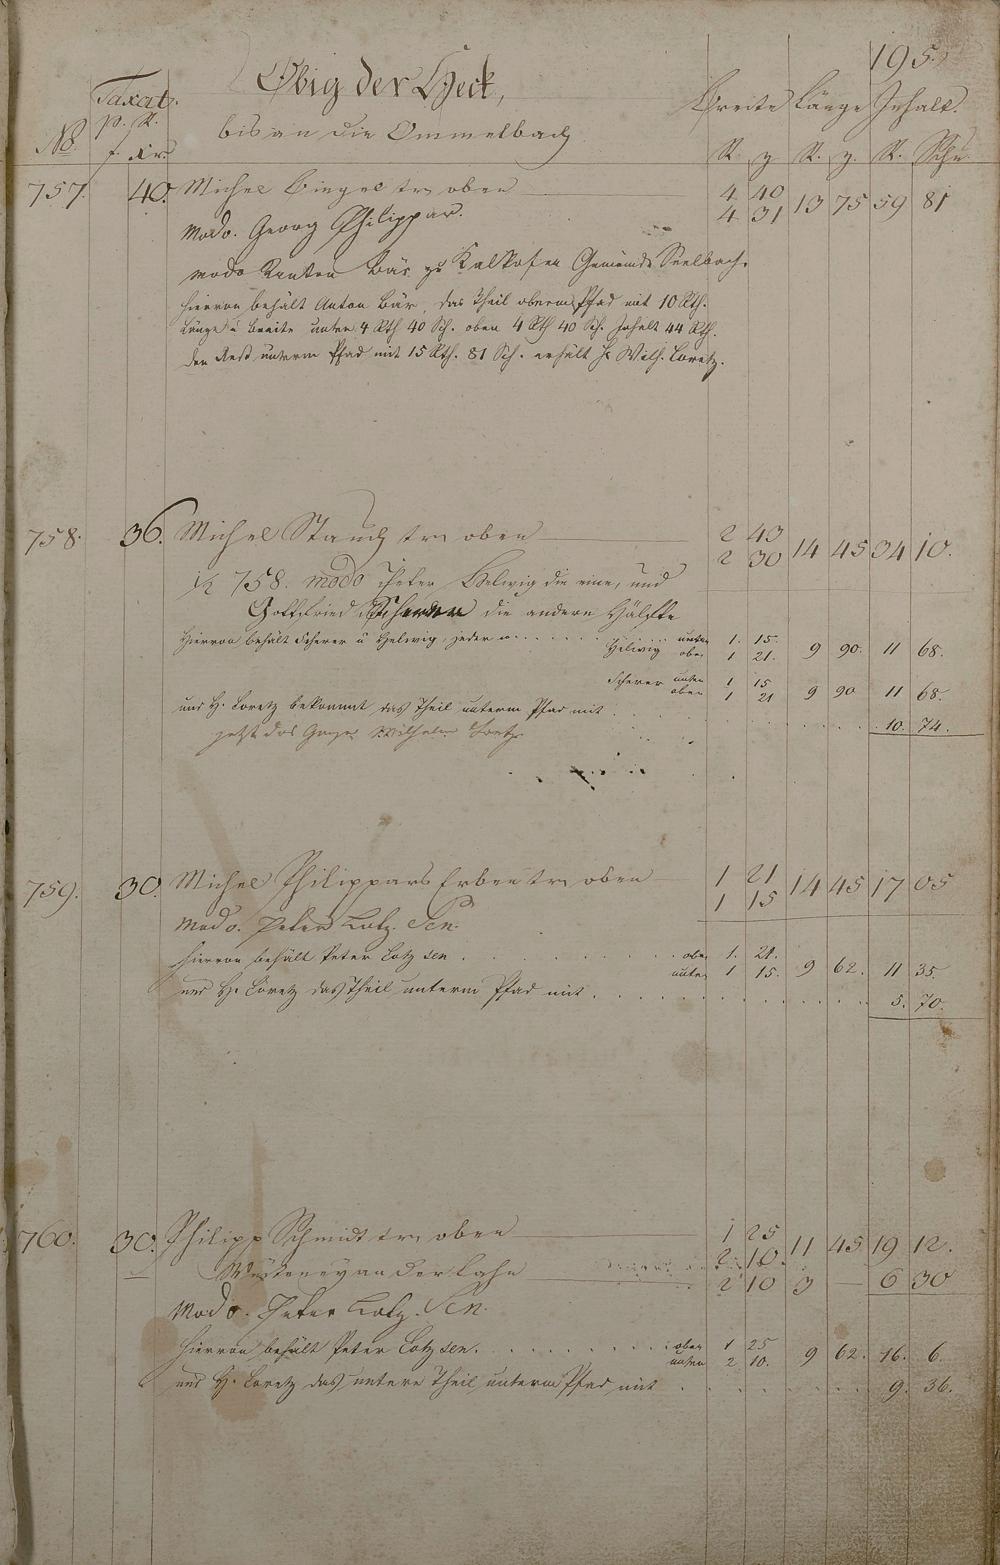 195.
Obig der Heck,
bis an die Ommelbach
No. Taxat. p. R. f. xr. Breite Länge Inhalt.
R. R. R. Schu
757. 40. Michel Bingel tr oben 4 40 13 75 59 81
4 31
Modo. Georg Philippar.
modo Anton Bär zu Kalkofen Gemeinde Seelbach.
Hiervon behält Anton Bär, das Theil oberm Pfad mit 10 Rth.
Länge u Breite unten 4 Rth 40 Sch. oben 4 Rth 40 Sch. Inhalt 44 Rth.
den Rest unterm Pfad mit 15 Rth. 81 Sch. erhält H Wilh. Loretz.
758. 36. Michel Stauch tr oben 2 43 14 45 34 10.
2 30
1/2 758. modo Peter Helwig die eine, und
Gottfried Scherer die andere Hälfte
Hiervon behält Scherer u Helwig, jeder Helwig unten 1. 15. 9 90. 11 68.
oben 1 21.
Scherer unten 1 15 9 90 11 68.
oben 1 21
und H. Loretz bekommt das Theil unterm Pfad mit 10. 74.
jetzt das Ganze Wilhelm Loretz
759. 30. Michel Philippars Erben tr oben 1 21 14 45 17 05
1 15
Modo. Peter Lotz. Sen.
Hiervon behält Peter Lotz sen oben 1. 21. 9 62. 11 35.
unten 1 15.
und H. Loretz das Theil unterm Pfad mit 5. 70.
760. 30. Philipp Schmidt tr oben 1 25 11 45 19 12.
2 10.
Wüsteney an der Lahn 2 10 3 — 6 30
Modo. Peter Lotz. Sen.
Hiervon behält Peter Lotz sen. oben 1 25 9 62. 16. 6.
unten 2 10.
und H. Loretz das untere Theil unterm Pfad mit 9. 36.